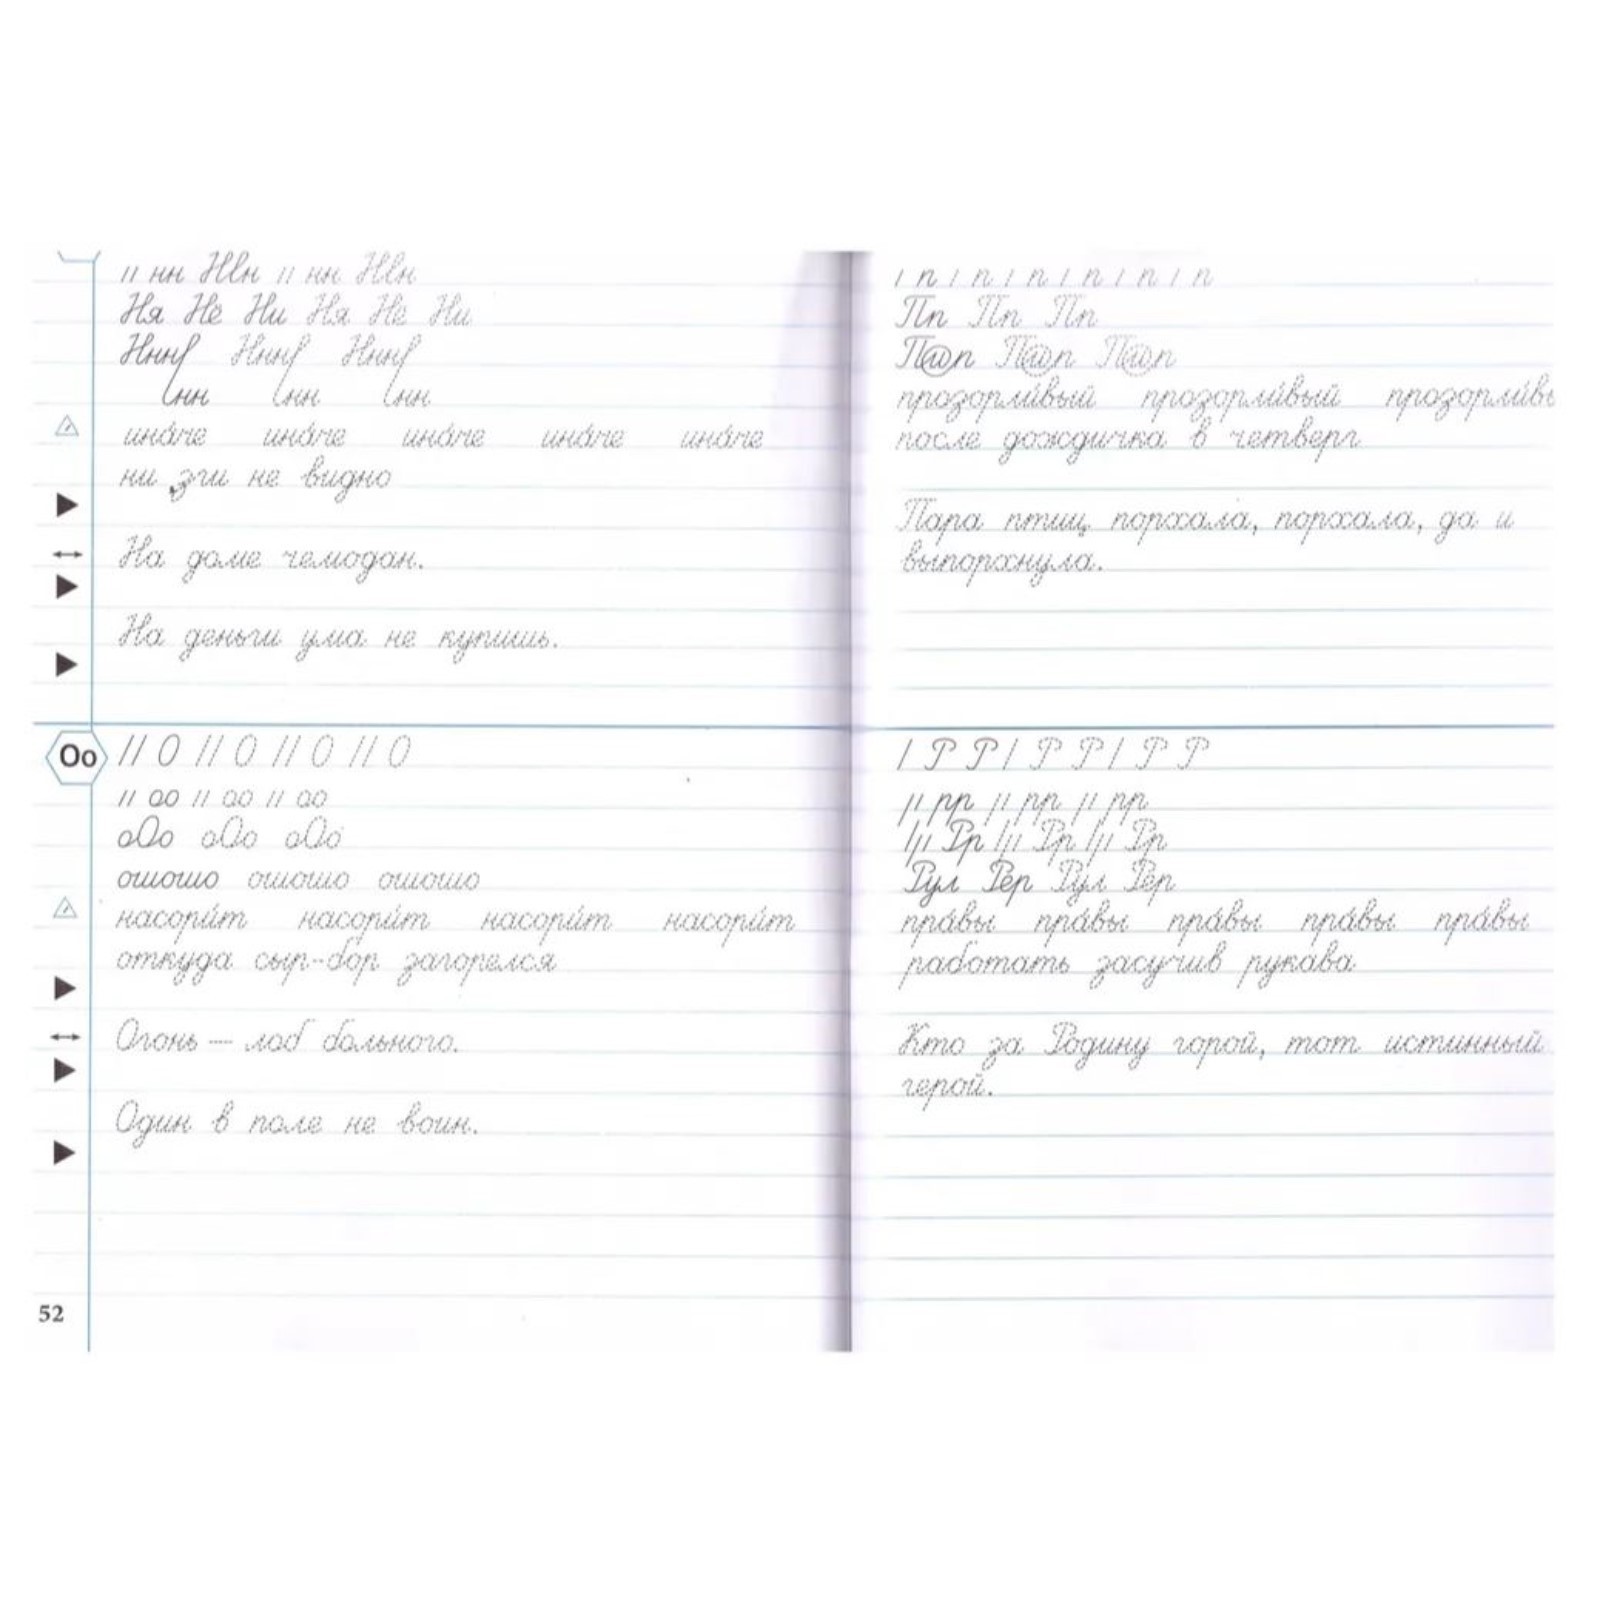 нн Нвн нн Нвн
Ня Нё Ни Ня Нё Ни
Ннн Ннн Ннн
нн нн нн
ина́че ина́че ина́че ина́че ина́че
ни зги не видно
На доме чемодан.
На деньги ума не купишь.
Оо
О О О О
оо оо оо
оОо оОо оОо
ошошо ошошо ошошо
насори́т насори́т насори́т насори́т
откуда сыр-бор загорелся
Огонь — лоб больного.
Один в поле не воин.
52
п п п п п п
Пп Пп Пп
П@п П@п П@п
прозорли́вый прозорли́вый прозорли́вы
после дождичка в четверг
Пара птиц порхала, порхала, да и
выпорхнула.
Р Р Р Р Р Р
рр рр рр
Рр Рр Рр
Рул Рер Рул Рер
пра́вы пра́вы пра́вы пра́вы пра́вы
работать засучив рукава
Кто за Родину горой, тот истинный
герой.